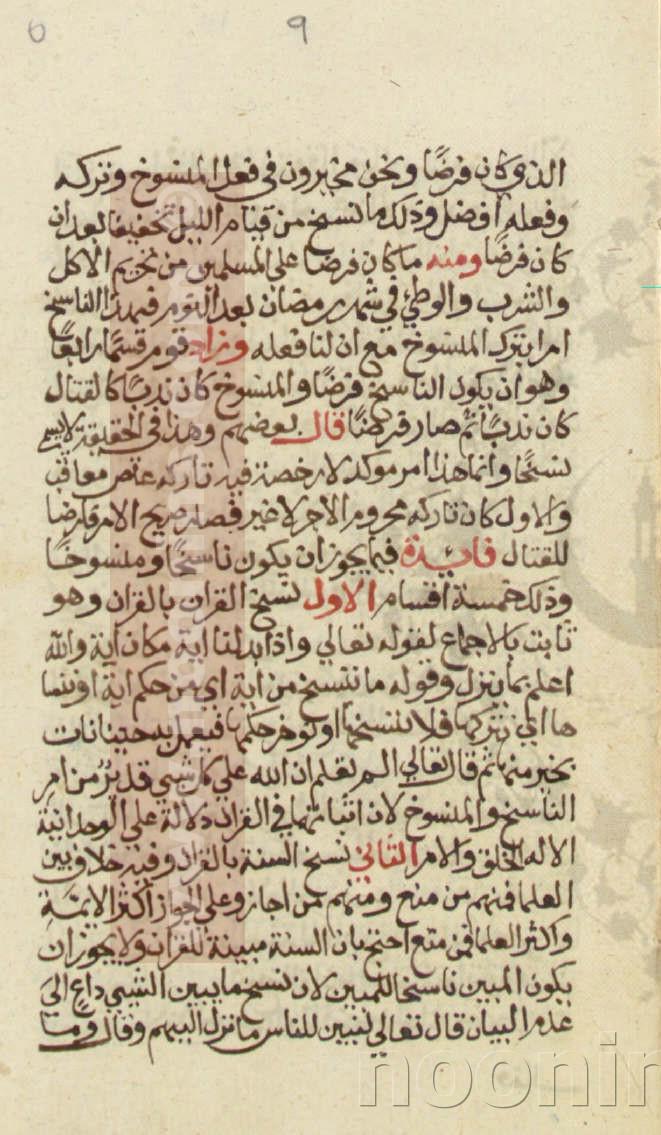 9
الذي كان فرضًا ونحن مخيرون في فعل المنسوخ وتركه
وفعله افضل وذلك ما نسخ من قيام الليل تخفيفا بعد ان
كان فرضًا ومنه ما كان فرضا على المسلمين من تحريم الاكل
والشرب والوطئ في شهر رمضان بعد النوم فهذا الناسخ
امرا بترك المنسوخ مع ان لنا فعله وزاد قوم قسمًا رابعًا
وهو ان يكون الناسخ فرضًا والمنسوخ كان ندبًا كالقتال
كان ندبًا ثم صار فرضًا قال بعضهم وهذا في الحقيقة لا يسمى
نسخًا وانما هذا امر موكد لا رخصة فيه تاركه معاقب
والاول كان تاركه محروم الاجر لا غير الامر فرضا
للقتال فايدة فيما يجوز ان يكون ناسخًا ومنسوخًا
وذلك خمسة اقسام الاول نسخ القران بالقران وهو
ثابت بالاجماع لقوله تعالي واذا بدلنا اية مكان اية والله
اعلم بما ينزل وقوله ما ننسخ من اية اي من حكم اية او ننسا
ها اي نتركها فلا ننسخها او نوخر حكمها فيعمل به حينا نات
بخير منها ثم قال تعالي الم تعلم ان الله علي كل شيي قديرٌ من امر
الناسخ والمنسوخ لان اثباتهما في القران دلالة علي الوحدانية
الا له الخلق والامر الثاني نسخ السنة بالقران وفيه خلاف بين
العلما فمنهم من منع ومنهم من اجاز وعلي الجواز اكثر الايمة
واكثر العلما فمن منع احتج بان السنة مبينة للقران ولا يجوز ان
يكون المبين ناسخا للمبين لان نسخ ما يبين الشيي داعٍ الي
عدم البيان قال تعالي لتبين للناس ما نزل اليهم وقال وما
noonin